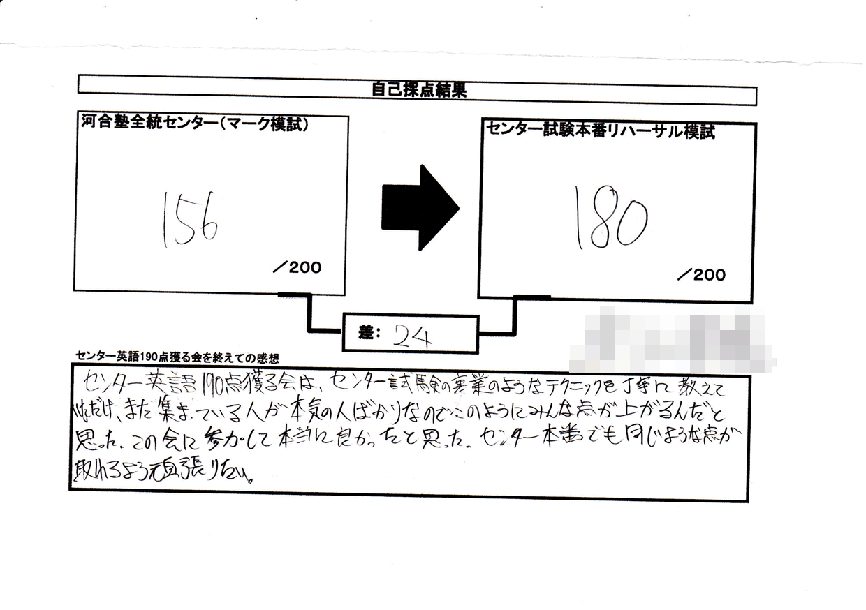 自己採点結果
河合塾全統センター(マーク模試)
センター試験本番リハーサル模試
156
180
/200
/200
差: 24
センター英語190点獲る会を終えての感想
センター英語190点獲る会は、センター試験の業のようなテクニックを丁寧に教えて
だけ、また集まっている人が本気の人ばかりなのでこのようにみんな点が上がるんだと
思った。この会に参加して本当に良かったと思った。センター本番でも同じような点が
取れるよう頑張りたい。